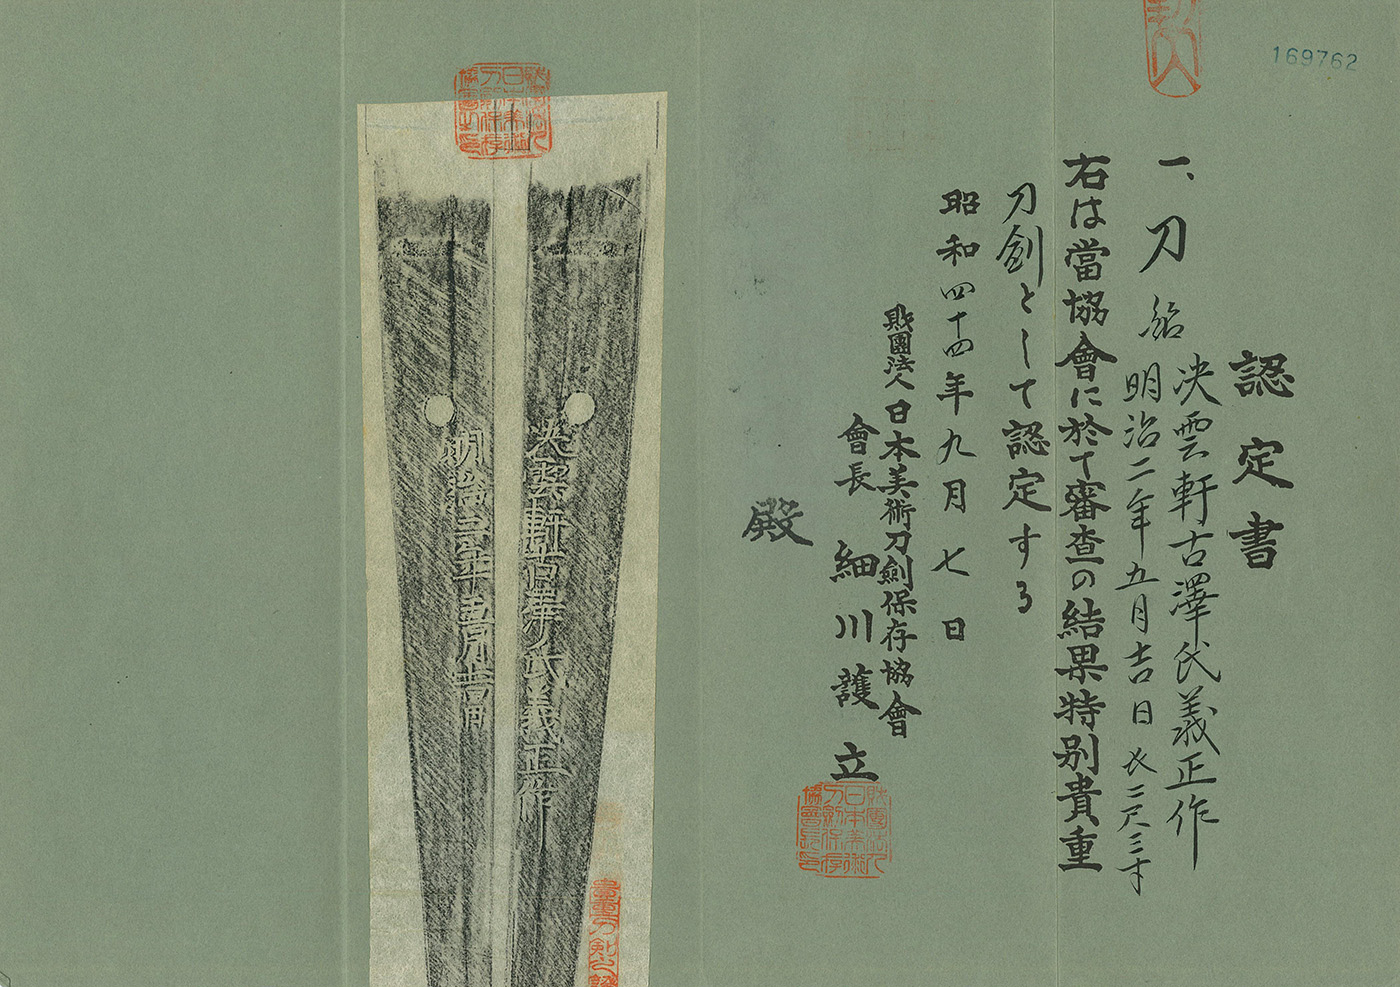 169762
認定書
一、刀 銘 決雲軒古澤氏義正作
明治二年五月吉日 長二尺三寸
右は當協會に於て審査の結果特別貴重
刀劍として認定する
昭和四十四年九月七日
財團法人日本美術刀劍保存協會
會長 細川護立
殿
財團法人
日本美術
刀劍保存
協會長印
決雲軒古澤氏義正作
明治二年五月吉日
貴重刀剣之